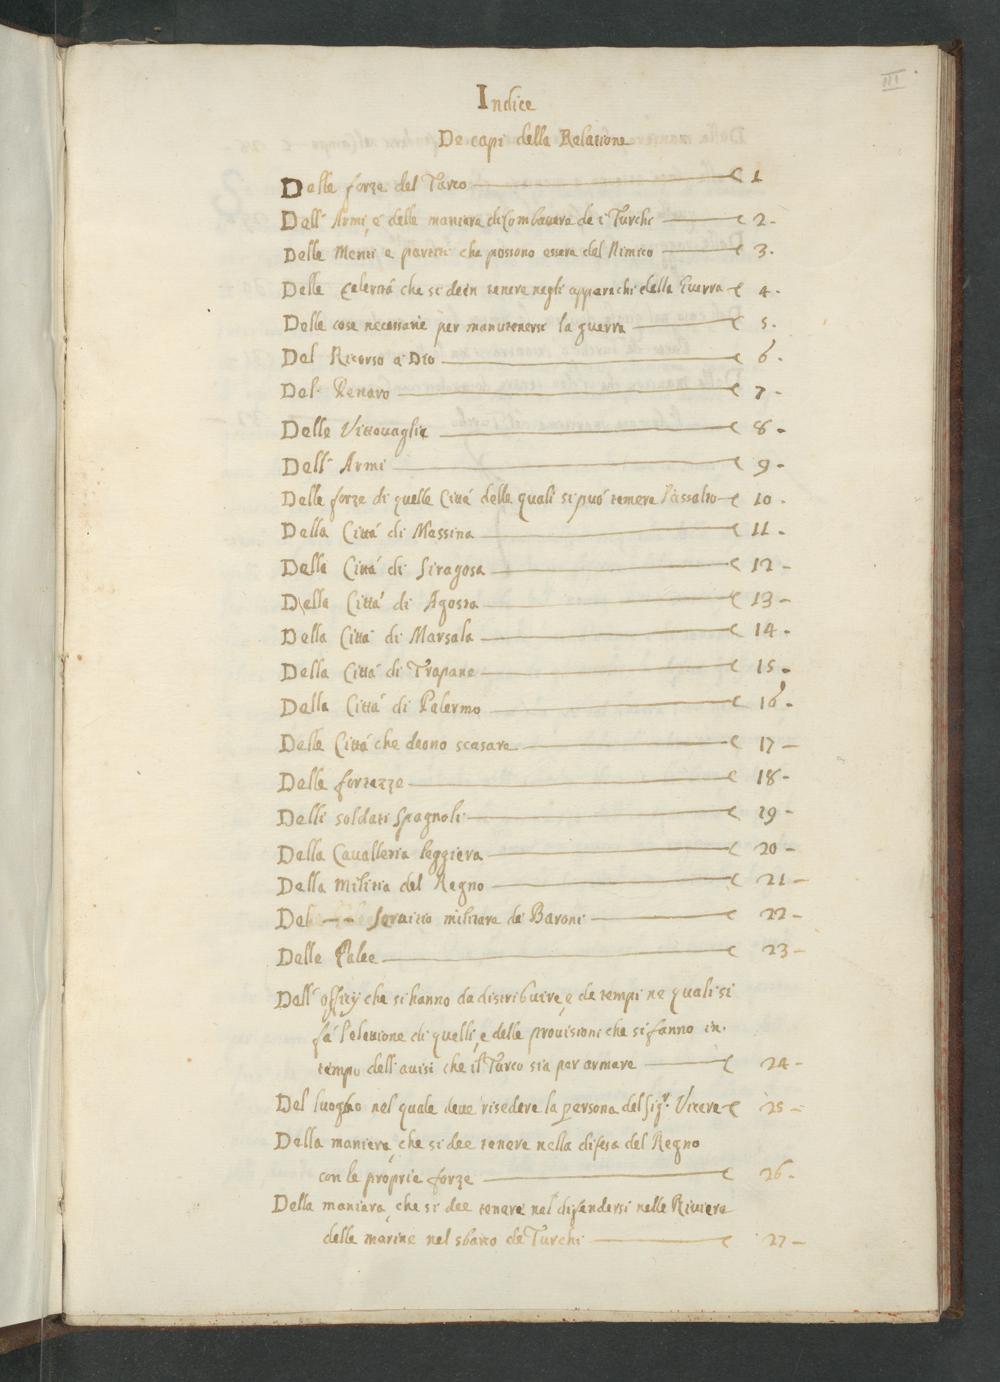 III
Indice
De capi della Relatione
Delle forze del Turco c 1
Dell' Armi, e delle maniere di Combattere de i Turchi c 2-
Delle Menti e partiti che possono essere del Nimico c 3.
Della Celerità che si deèn tenere negli apparechi della Guerra c 4.
Delle cose necessarie per manutenersi la guerra c 5.
Del Ricorso a Dio c 6.
Del Denaro c 7-
Delle Vittovaglie c 8-
Dell' Armi c 9-
Delle forze di quelle Cittá delle quali si puó temere l'assalto c 10.
Della Cittá di Messina c 11.
Della Cittá di Siragosa c 12-
Della Cittá di Agosta c 13-
Della Cittá di Marsala c 14.
Della Cittá di Trapane c 15.
Della Cittá di Palermo c 16.
Delle Cittá che deono scasare c 17-
Delle fortezze c 18-
Delli soldati Spagnoli c 19-
Della Cavalleria leggiera c 20-
Della Militia del Regno c 21-
Del servitio militare de Baroni c 22-
Delle Palee c 23-
Dell' officij che si hanno da distribuire, e de tempi ne quali si
fá l'eletione di quelli, e delle provisioni che si fanno in
tempo dell'auisi che il Turco sia per armare c 24-
Del luogho nel quale deve risedere la persona del Sigr. Vicere c 25-
Della maniera, che si dee tenere nella difesa del Regno
con le proprie forze c 26.
Della maniera, che si dee tenere nel difendersi nelle Riviere
delle marine nel sbarco de Turchi c 27-